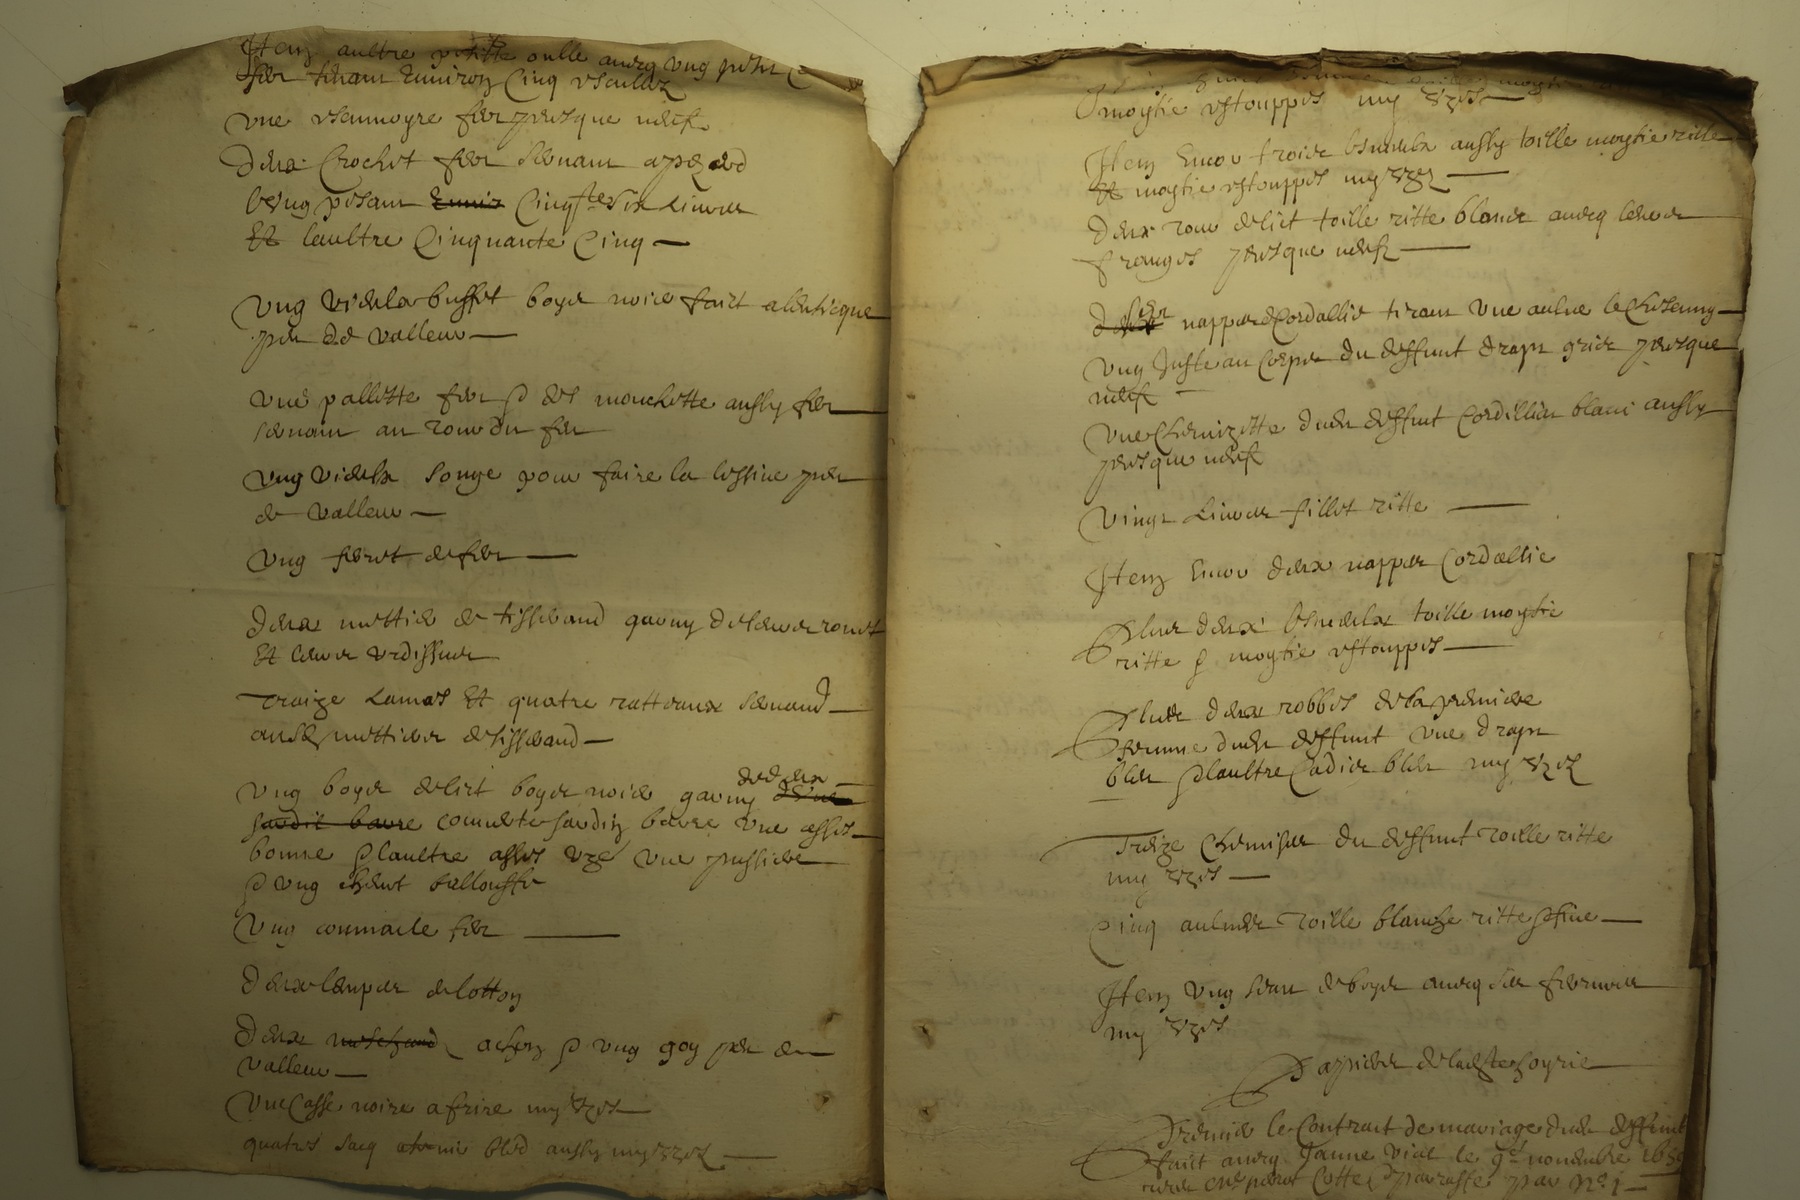 Item aultre petitte oulle avecq ung petit
fer tenant environ cinq escuelez
une escumoyre fer presque neufz
deux crochet fer servant a pezed
l'ung pesant envir cinqte six livres
Et laultre Cinquante Cinq —
ung vieulx buffet boys noier faict a lanticque
peu de valleur —
une pallette fer & des mouchette aussy fer
servant au tour du fer
ung vieulx songe pour faire la lessive peu
de valleur —
ung fieret de fer —
deux mettier de tisserand garny de leurs rouet
Et leurs urdisseur
traize lames Et quatre ratteaux servand
ausd mettiers de tisserand —
ung boys de lict boys noier garny de deux
d'une
sardit barre couverte sardis barre une asses
bonne & laultre asses uzé une passiere
& ung chevet ballouffe
ung couvacle fer —
deux lampes de lotton
deux meschand achon & ung goy peu de
valleur —
une Casse noire a frire my uzes —
quatres sacq a tenir bled aussy my uzez —
moytié estouppes my uzes —
Item encor trois linseulx aussy toille moytié ritte
Et moytié estouppes my uzez —
deux tour de lict toille ritte blance avecq leurs
franges presque neufz —
deux six nappes Cordallie tirant une aulne le chescung —
ung Juste au corps du deffunt drap gris presque
neufz —
une chemizette dudt deffunt Cordillat blanc aussy
presque neufz
vingt livres fillet ritte —
Item encor deux nappes Cordallie
Plus deux linseulx toille moytié
ritte & moytié estouppes —
Plus deux robbes de la premiere
femme dudt deffunt une drap
bleu & laultre Cadis bleu my uzez
Treize chemises du deffunt toille ritte
my uzes —
Cinq aulnes toille blanche ritte & fine —
Item ung seau de boys avecq ses ferrures
my uzes
Papiers de ladte hoyrie —
Premier le Contract de mariage dudt deffunt
faict avecq Janne Vial le 9e novembre 165
cotté & paraffe par No 1 —